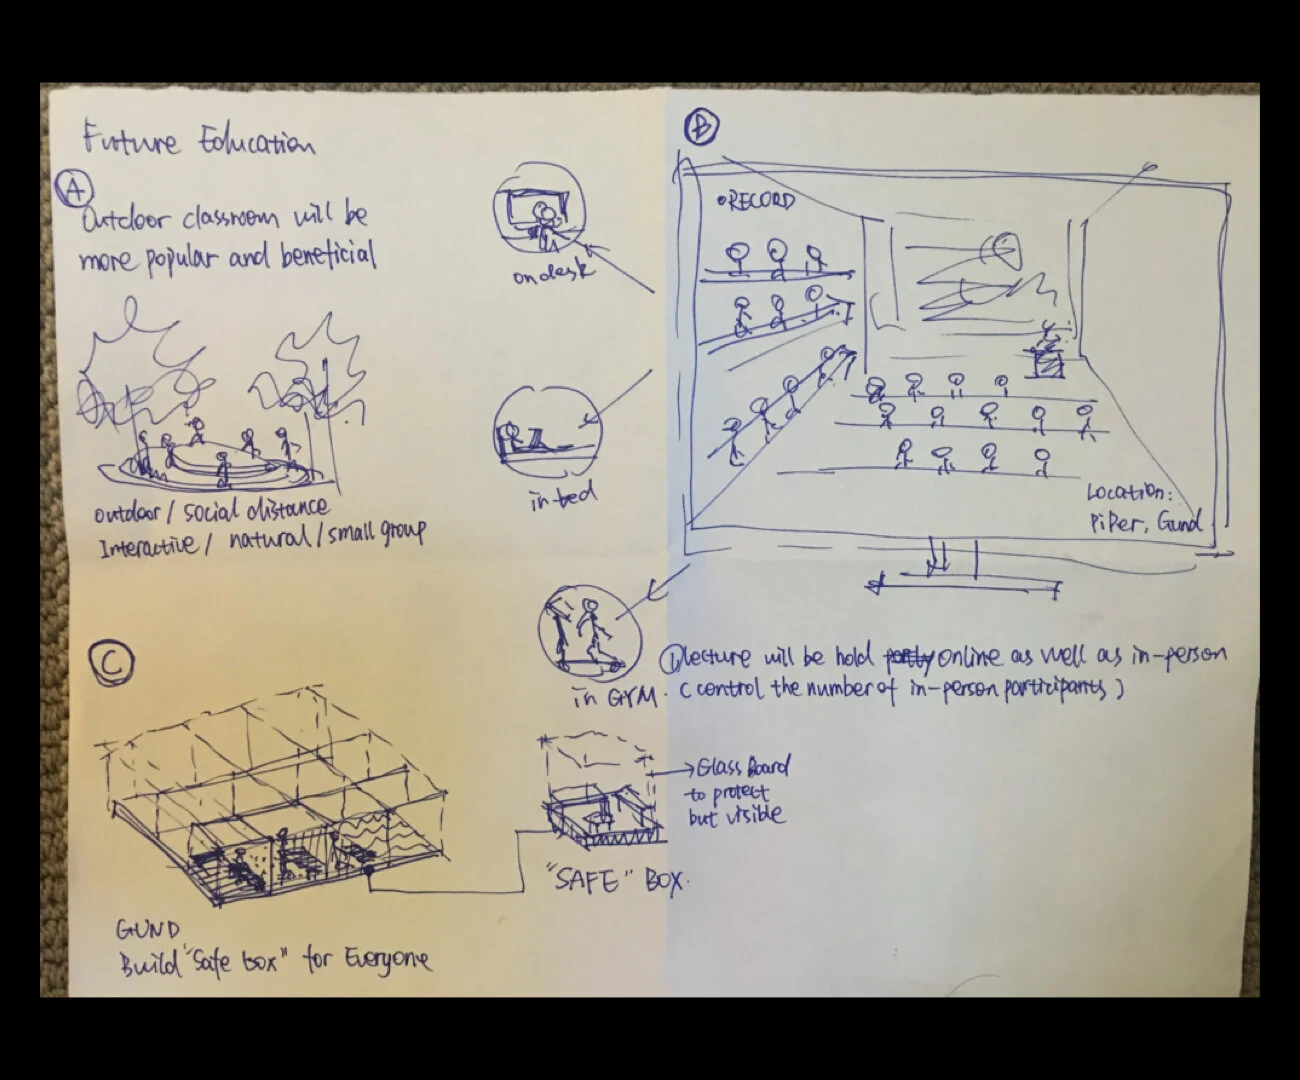 Future Education
A
Outdoor classroom will be
more popular and beneficial
outdoor / social distance
Interactive / natural / small group
on desk
in bed
in GYM.
B
•RECORD
Location:
PiPer, Gund
① lecture will be hold partly online as well as in-person
( control the number of in-person participants )
C
GUND
Build "Safe box" for Everyone
Glass Board
to protect
but visible
"SAFE" BOX.